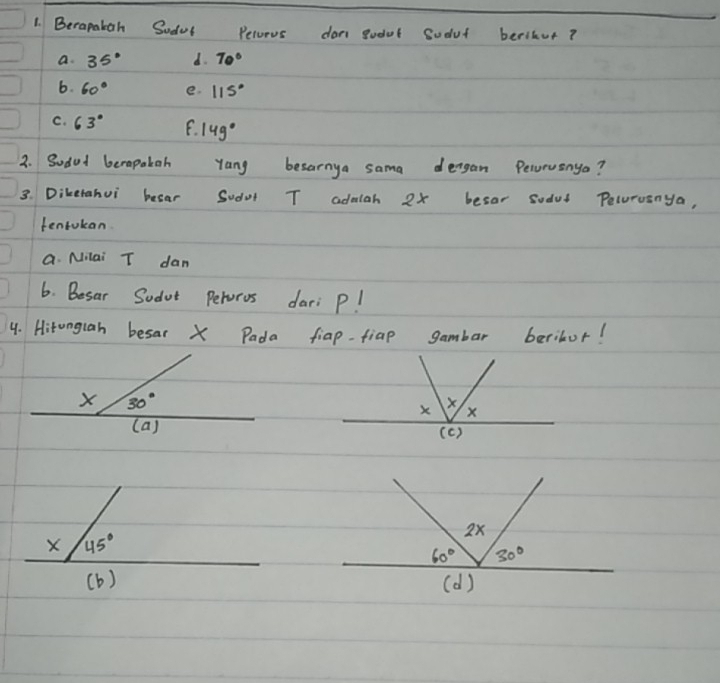 1. Berapakah Sudut Pelurus dari sudut Sudut berikut ?
a. 35° d. 70°
b. 60° e. 115°
c. 63° F. 149°
2. Sudut berapakah Yang besarnya sama dengan Pelurusnya ?
3. Diketahui besar Sudut T adalah 2x besar sudut Pelurusnya,
tentukan.
a. Nilai T dan
b. Besar Sudut Pelurus dari P !
4. Hitunglah besar X Pada tiap-tiap gambar berikut !
X 30°
(a)
x x x
(c)
X 45°
(b)
2x
60° 30°
(d)